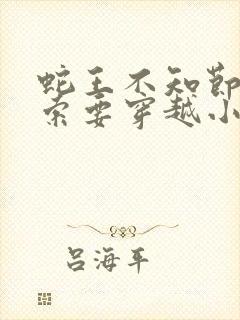 蛇王不知节
索要穿越小
吕海平